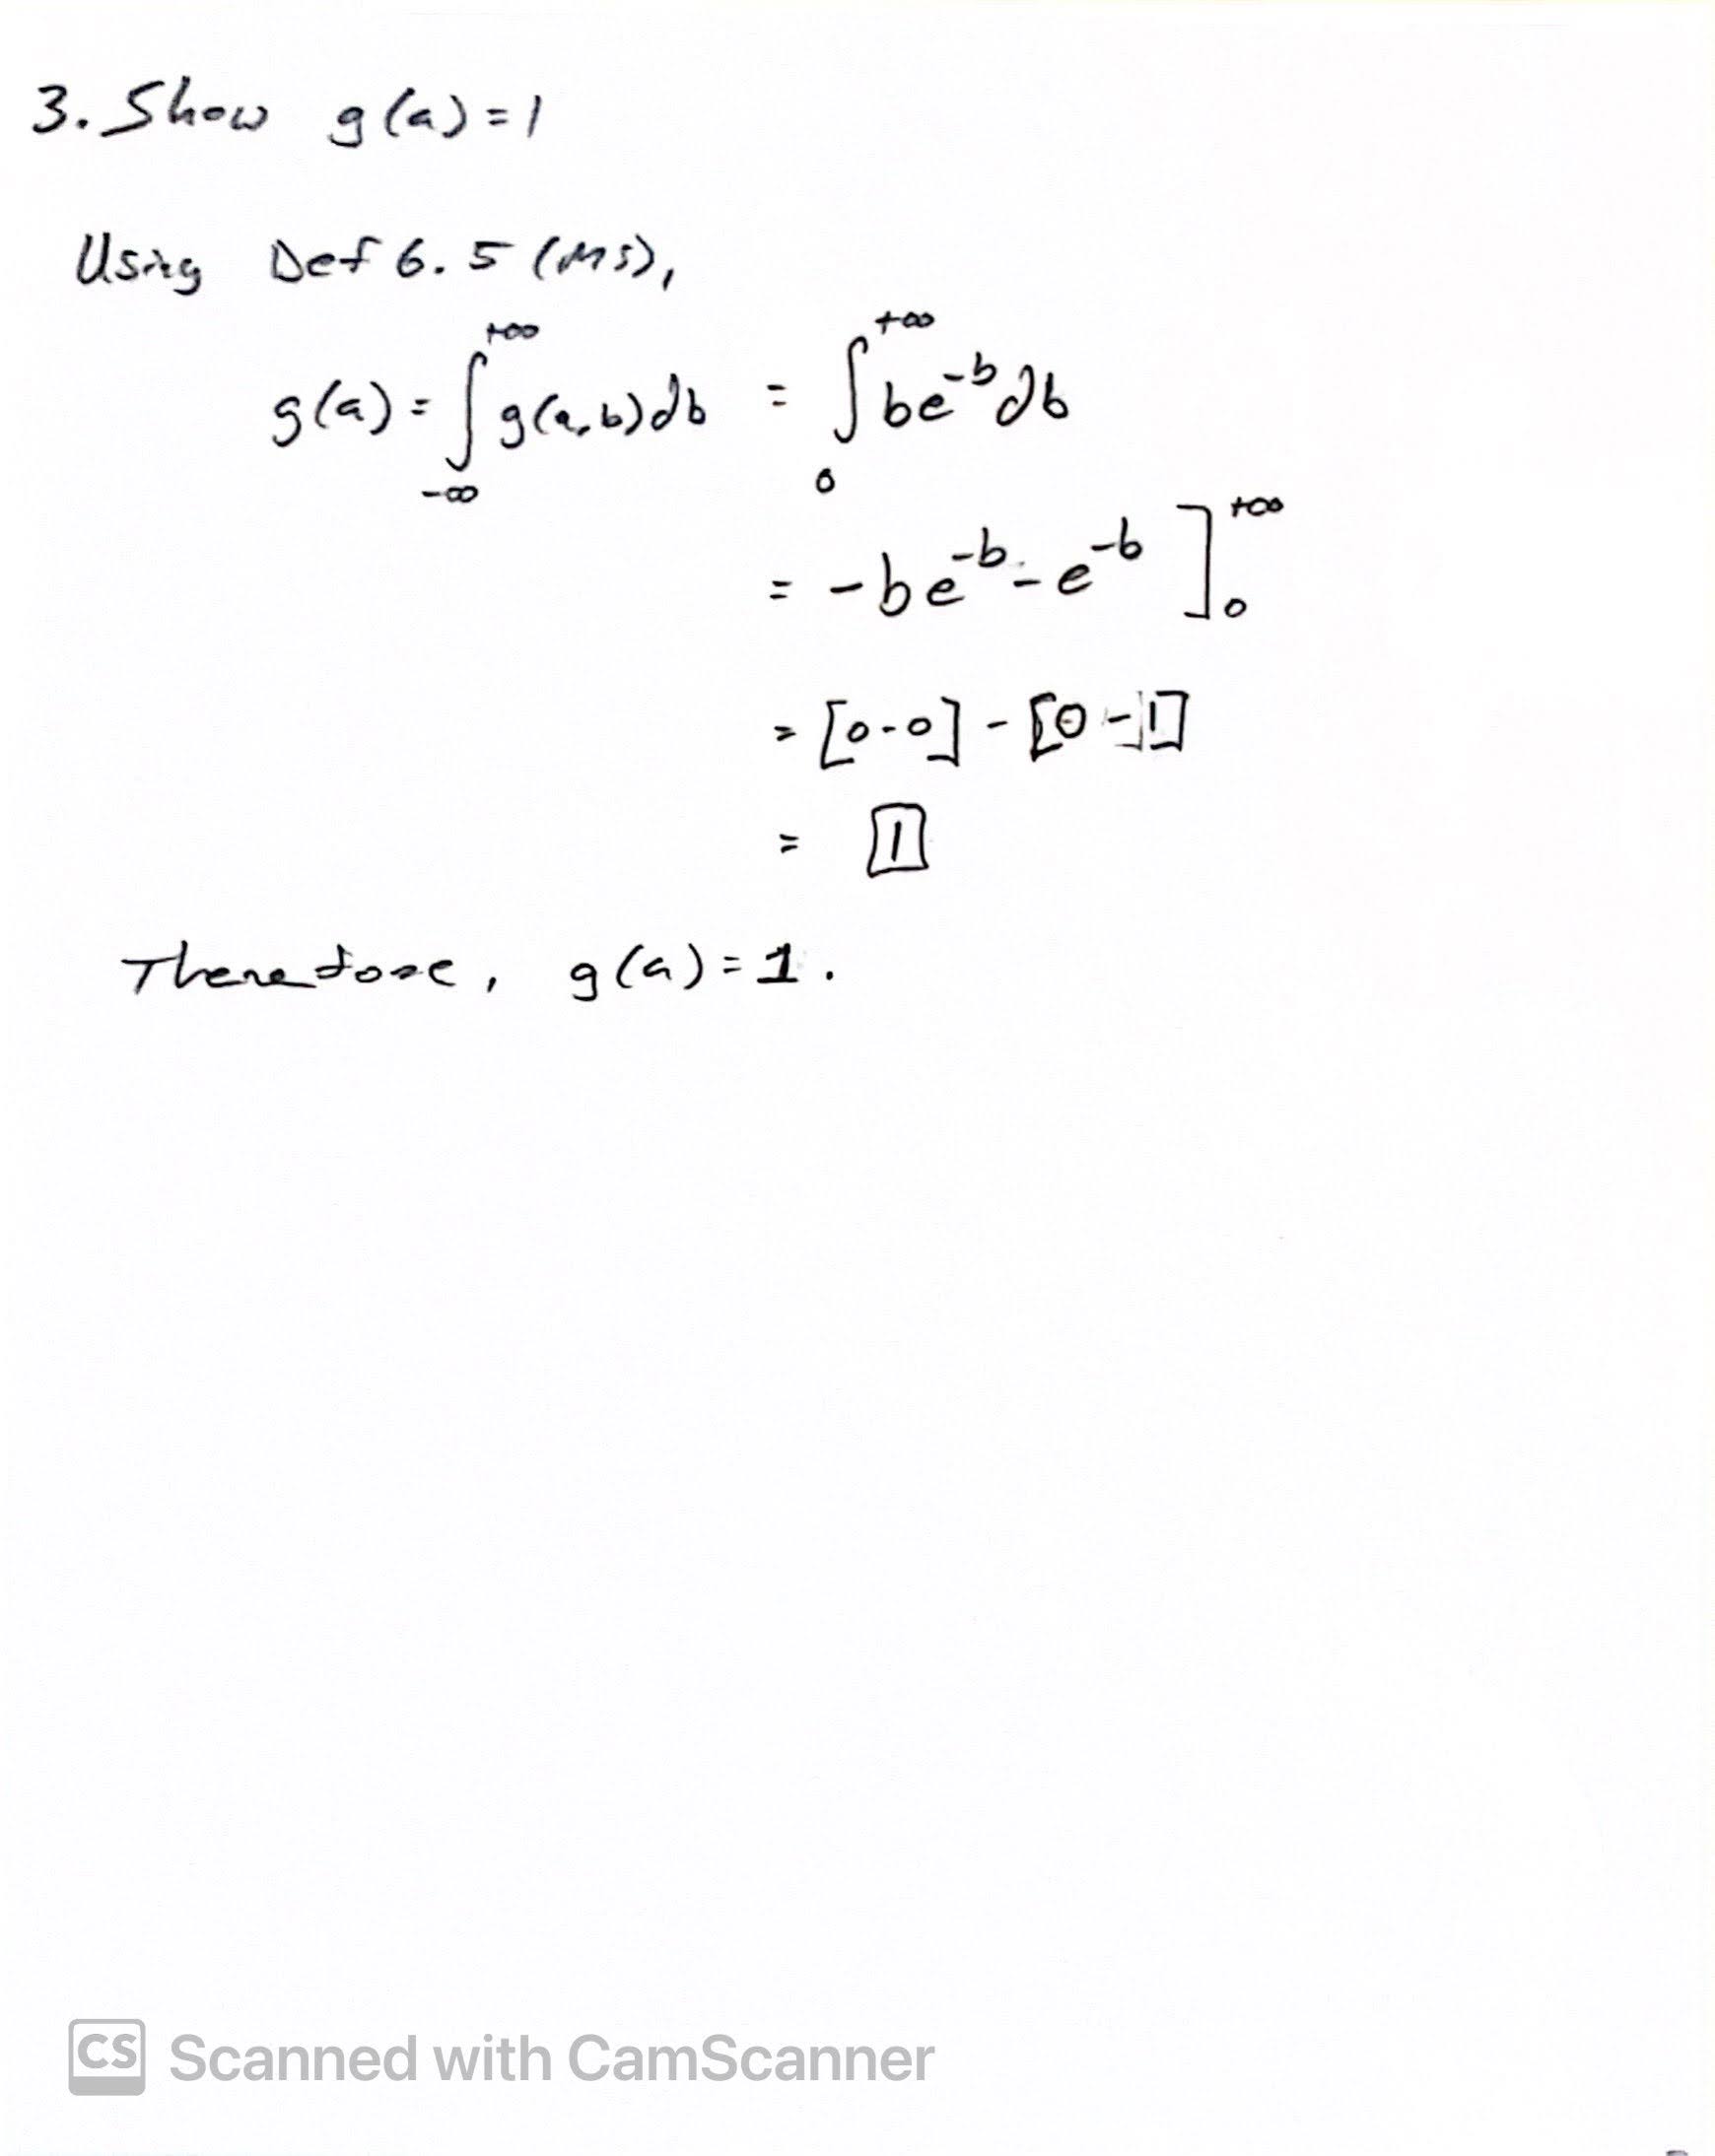 3. Show g(a)=1
Using Def 6.5 (MS),
g(a) = ∫_{-∞}^{+∞} g(a,b)db = ∫_0^{+∞} be^{-b}db
= -be^{-b} - e^{-b} ]_0^{+∞}
= [0-0] - [0-1]
= 1
Therefore, g(a)=1.
CS Scanned with CamScanner